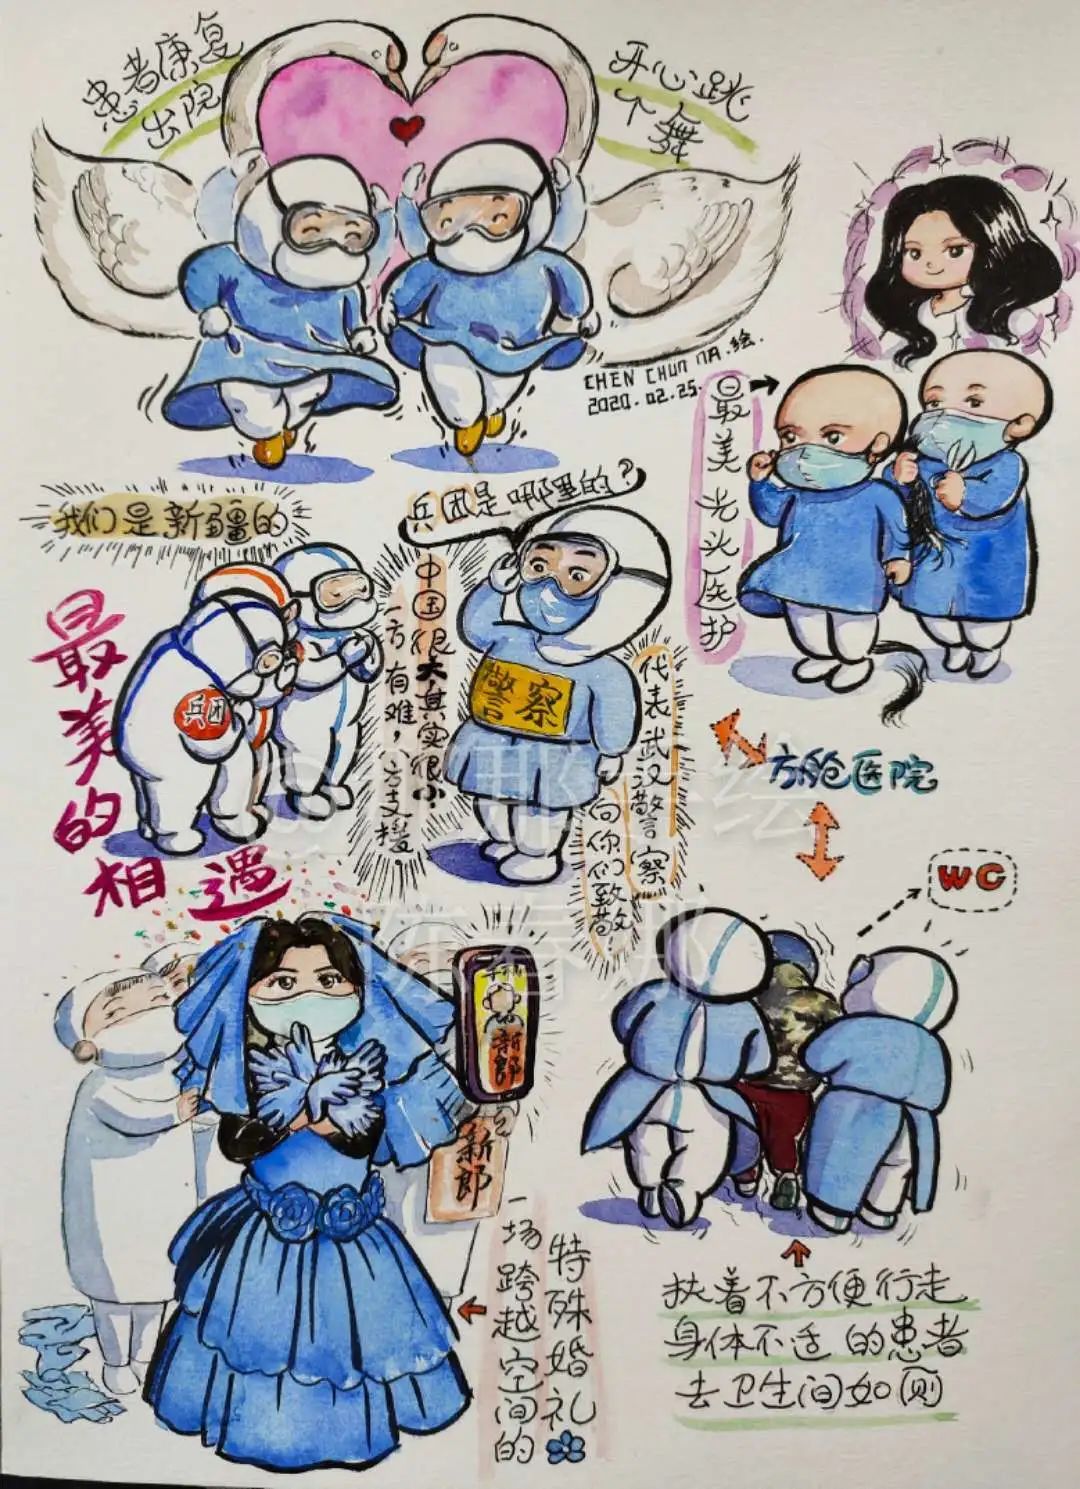 患者康复
出院
开心跳
个舞
CHEN CHUN NA.绘.
2020.02.25.
最美光头医护
我们是新疆的
兵团是哪里的?
中国很大其实很小
一方有难,八方支援,
兵团
警察
代表武汉警察
向你们致敬
最美的
相遇
方舱医院
WC
新郎
新郎
一场跨越空间的
特殊婚礼
扶着不方便行走
身体不适的患者
去卫生间如厕
陈春娜